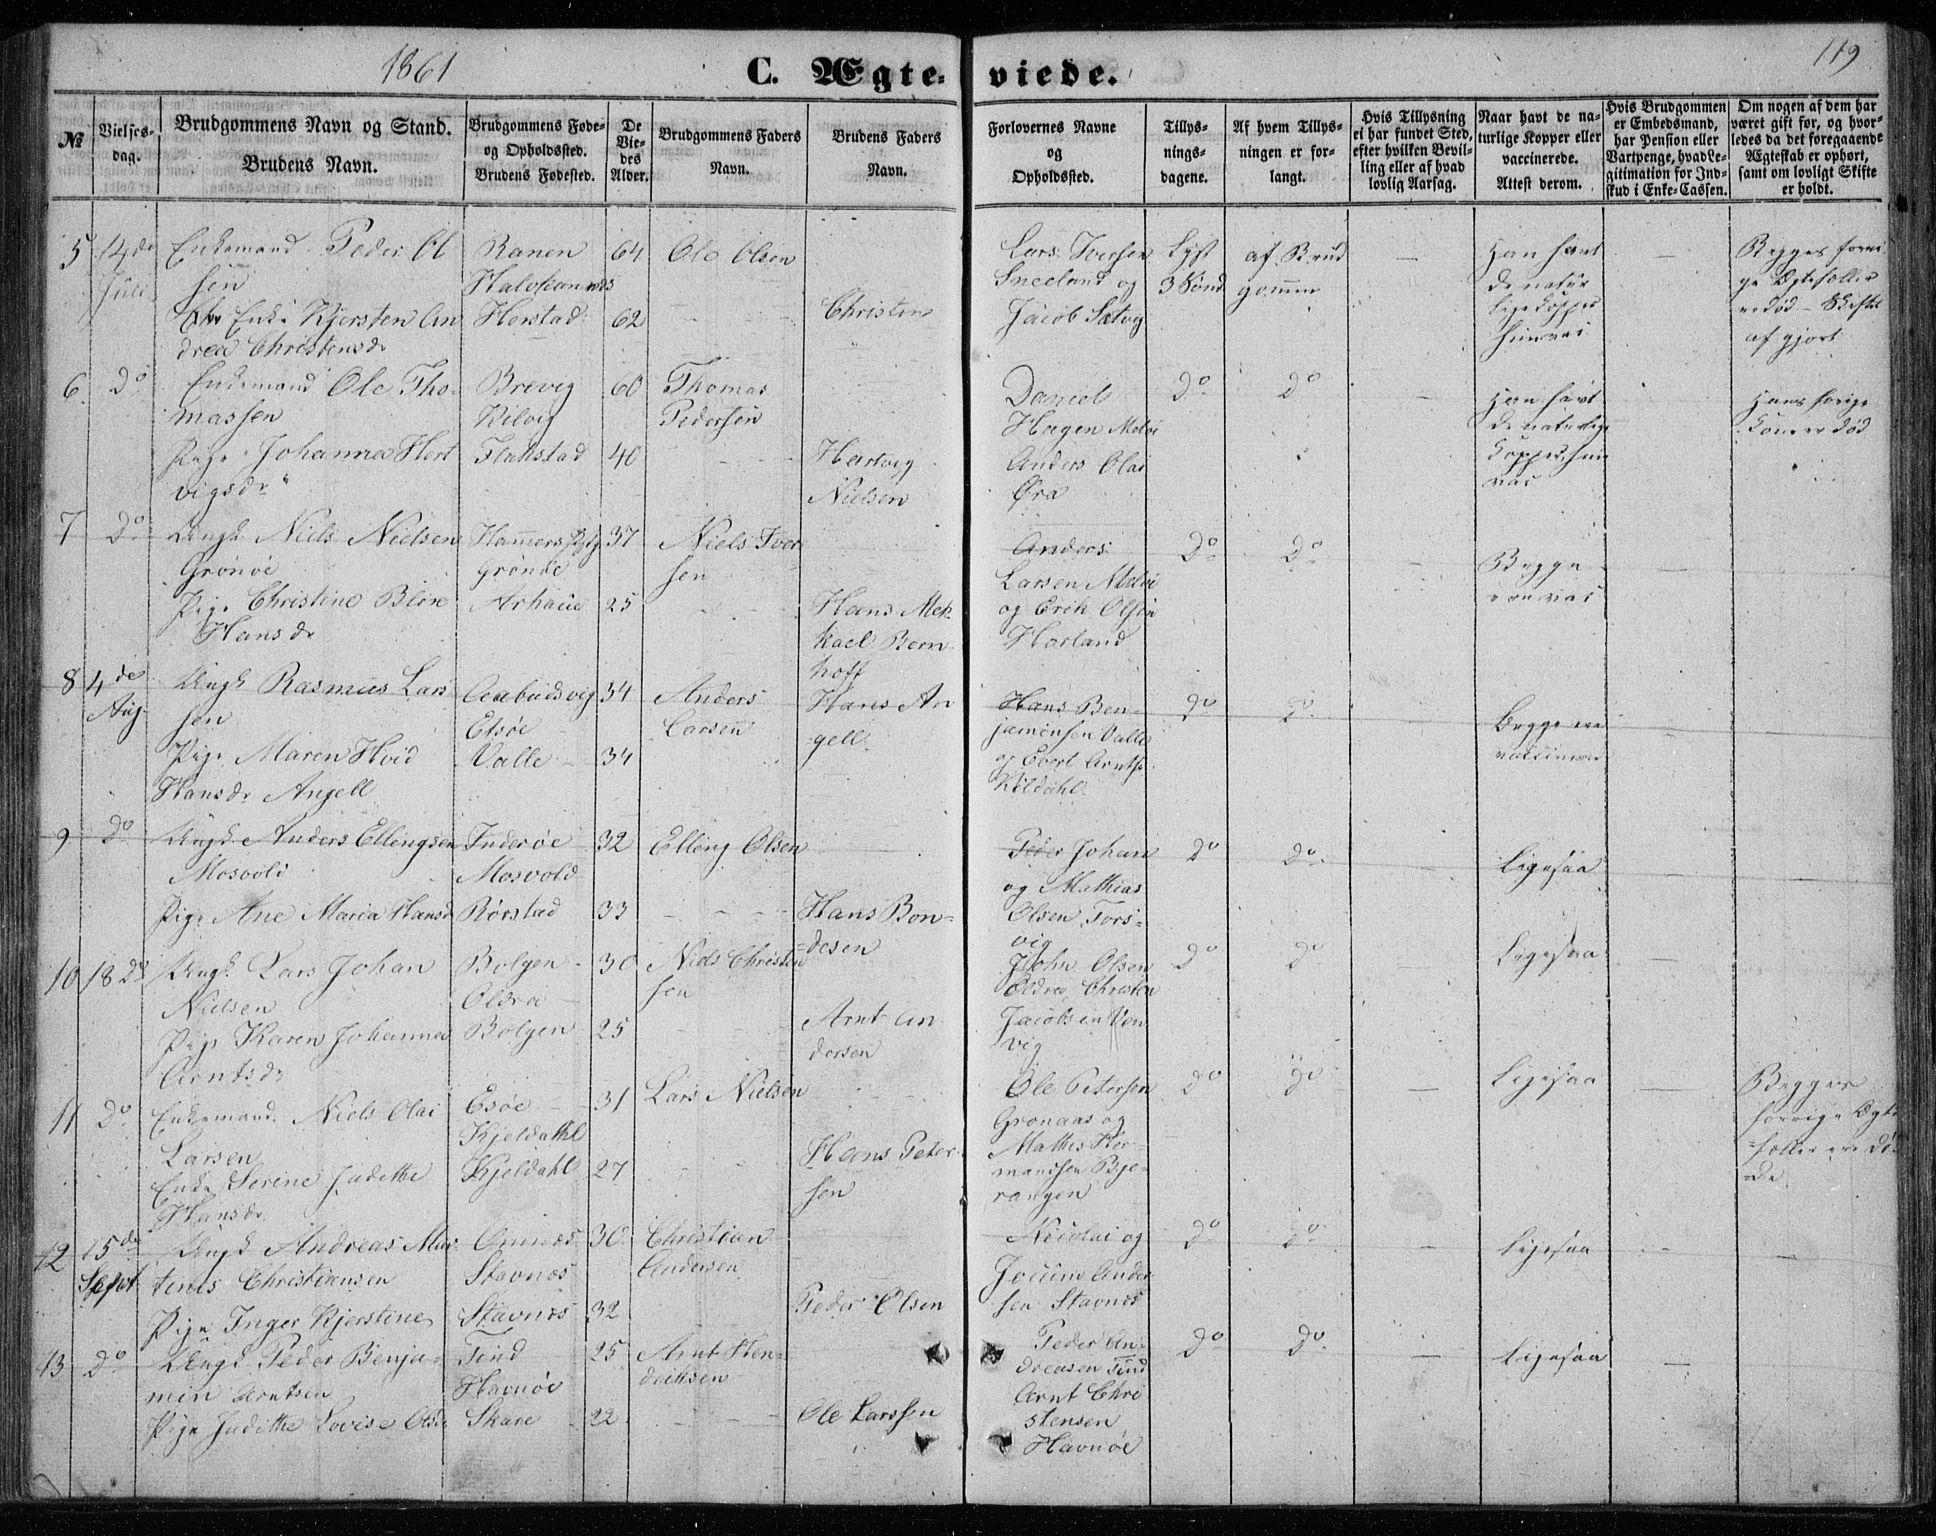 1861
C. Ægte-viede.
119
№
Vielses-dag.
Brudgommens Navn og Stand.
Brudens Navn.
Brudgommens Føde- og Opholdssted.
Brudens Fødested.
De Vie-des Alder.
Brudgommens Faders Navn.
Brudens Faders Navn.
Forlovernes Navne og Opholdssted.
Tillys-nings-dagene.
Af hvem Tillys-ningen er for-langt.
Hvis Tillysning ei har fundet Sted, efter hvilken Bevil-ling eller af hvad lovlig Aarsag.
Naar havt de na-turlige Kopper eller vaccinerede.
Attest derom.
Hvis Brudgommen er Embedsmand, har Pension eller Vartpenge, hvad Le-gitimation for Ind-skud i Enke-Cassen.
Om nogen af dem har været gift før, og hvor-ledes da det foregaaende Ægteskab er ophørt, samt om lovligt Skifte er holdt.
5 14de Juli
Enkemand Peder Ol
sen
Enke Kjersten An
drea Christensdr
Ranen
Herstad
64
62
Ole Olsen
Christen
Lars Iversen
Sneeland og
Jacob Sætvig
Lyst
3 Sønd
af Brud
gommen
Han havt
de natur
lige kopper
hun vac
Begges forri
ge Ægtefæller
er død - Skifte
af gjort
6 Do
Enkemand Ole Tho-
massen
Pige Johanna Hert
vigsdr
Brevig
Kilvig
Flakstad
60
40
Thomas
Pedersen
Hartvig
Nielsen
Daniel
Hagen Meløe
Anders Olai
Øra
Do
Do
Han havt
de naturlige
Kopper, hun
vac
Hans forige
Kone er død
7 Do
Ungk Niels Nielsen
Grønøe
Pige Christine
Hansdr
Hammers Pgld
Grønøe
37
25
Niels Iver
sen
Hans Mek
kael Bern
hoff
Anders
Larsen Meløe
og Erik Olsen
Horland
Do
Do
Begge
ere vac
8 4de Aug
Ungk Rasmus Lars
sen
Pige Maren Hvid
Hansdr Angell
Valle
34
34
Anders
Larsen
Hans An
gell
Hans Ben-
jaminsen Valle
og Ebert Arnts
Kildahl
Do
Do
Begge ere
vaccineret
9 Do
Ungk Anders Ellingsen
Mosvold
Pige Ane Maria Hansd
Inderøe
Mosvold
Rørstad
32
33
Elling Olsen
Hans Bon-
desen
Peder Johan
og Mathias
Olsen Tors-
vig
Do
Do
Ligesaa
10 18 Do
Ungk Lars Johan
Nielsen
Pige Karen Johanna
Arntsdr
Bolgen
Oldra
Bolgen
30
25
Niels Christen
sen
Arnt An
dersen
John Olsen
Oldra, Christen
Jacobsen Von
vig
Do
Do
Ligesaa
11 Do
Enkemand Niels Olai
Larsen
Enke Serine Judithe
Hansdr
Esøe
Kjeldahl
Kjeldahl
31
27
Lars Nielsen
Hans Peter
sen
Ole Petersen
Gronaas og
Mathis Her
manssen Bje-
rangen
Do
Do
Ligesaa
Begges
forrige Ægte
fæller ere dø
de
12 15de Septbr
Ungk Andreas Mar
tenus Christiansen
Pige Inger Kjerstine
Ornnes
Stavnæs
Stavnæs
30
32
Christian
Andersen
Peder Olsen
Nicolai og
Jochim Ander
sen Stavnæs
Do
Do
Ligesaa
13 Do
Ungk Peder Benja-
min Arntsen
Pige Judithe Lovise Olsd
Tind
Havnøe
Skare
25
22
Arnt Hen-
driksen
Ole Larssen
Peder An-
dreasen Tind
Arnt Chri
stensen
Havnøe
Do
Do
Ligesaa